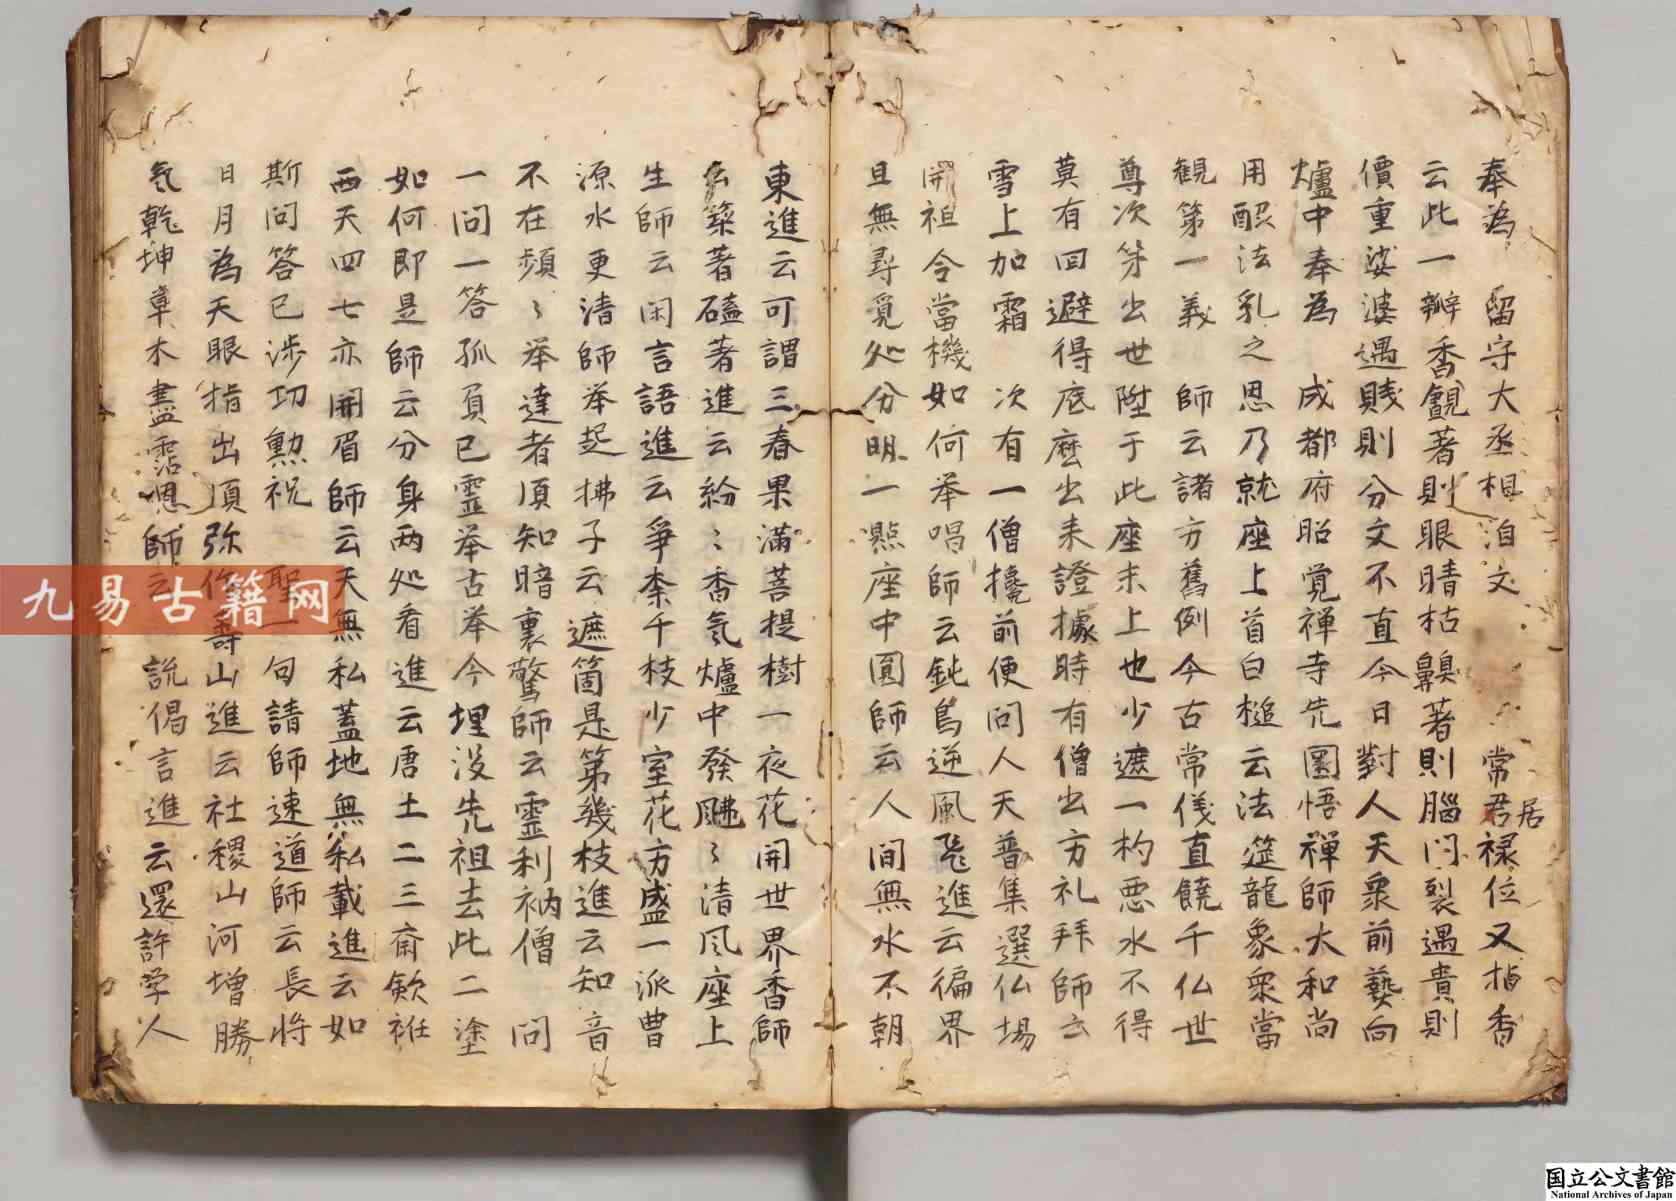 奉為　留守大丞相洎文　常君禄位又拈香
居
云此一瓣香覷著則眼睛枯鼻著則腦門裂遇貴則
價重娑婆遇賤則分文不直今日對人天衆前爇向
爐中奉為　成都府昭覚禅寺先圜悟禅師大和尚
用酬法乳之恩乃就座上首白槌云法筵龍象衆當
観第一義　師云諸方舊例今古常儀直饒千仏世
尊次第出世陞于此座未上也少遮一杓悪水不得
莫有回避得底麼出来證據時有僧出方礼拜師云
雪上加霜　次有一僧攙前便問人天普集選仏場
開祖令當機如何举唱師云鈍鳥逆風飛進云徧界
且無尋覓処分明一點座中圓師云人間無水不朝
東進云可謂三春果滿菩提樹一夜花開世界香師
云築著磕著進云紛〻香氣爐中發颺〻清风座上
生師云閑言語進云爭柰千枝少室花方盛一派曹
源水更清師举起拂子云遮箇是第幾枝進云知音
不在頻〻举達者須知暗裏驚師云靈利衲僧　問
一問一答孤負已靈举古举今埋没先祖去此二塗
如何即是師云分身两処看進云唐土二三齊歛袵
西天四七亦開眉師云天無私蓋地無私載進云如
斯問答已涉功勲祝　聖一句請師速道師云長将
日月為天眼指出須弥作壽山進云社稷山河增勝
氣乾坤草木盡霑恩師云　説偈言進云還許学人
九易古籍网
国立公文書館
National Archives of Japan